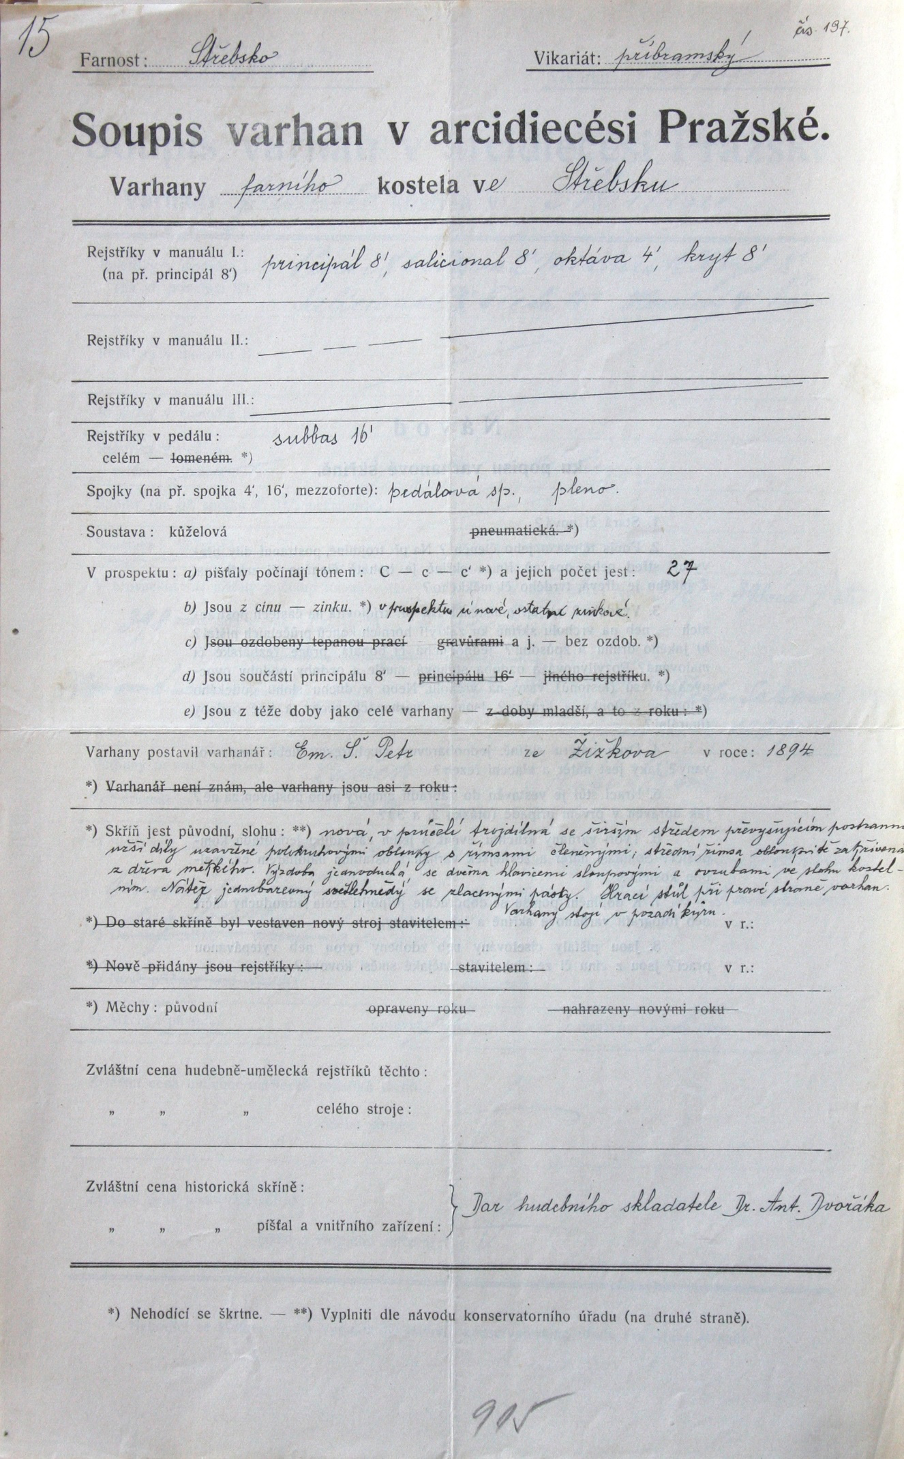 15
čís. 197.
Farnost: Střebsko Vikariát: příbramský
Soupis varhan v arcidiecési Pražské.
Varhany farního kostela ve Střebsku
Rejstříky v manuálu I.: principál 8', salicional 8', oktáva 4', kryt 8'
(na př. principál 8')
Rejstříky v manuálu II.:
Rejstříky v manuálu III.:
Rejstříky v pedálu: subbas 16'
celém — lomeném. *)
Spojky (na př. spojka 4', 16', mezzoforte): pedálová sp., pleno.
Soustava: kůželová pneumatická. *)
V prospektu: a) píšťaly počínají tónem: C — c — c' *) a jejich počet jest: 27
b) Jsou z cínu — zinku. *) v prospektu cínové, ostatní zinkové.
c) Jsou ozdobeny tepanou prací — gravůrami a j. — bez ozdob. *)
d) Jsou součástí principálu 8' — principálu 16' — jiného rejstříku. *)
e) Jsou z téže doby jako celé varhany — z doby mladší, a to z roku: *)
Varhany postavil varhanář: Em. Š. Petr ze Žižkova v roce: 1894
*) Varhanář není znám, ale varhany jsou asi z roku:
*) Skříň jest původní, slohu: **) nová, v průčelí trojdílná se širším středem převyšujícím postranní
užší díly uzavřené polokruhovými oblouky s římsami členěnými, střední římsa
z dřeva měkkého. Výzdoba jednoduchá, se dvěma hlavicemi sloupovými a ovrubami ve slohu kostel-
ním. Nátěr jednobarevný světlehnědý se zlacenými pásty. Hrací stůl při pravé straně varhan.
Varhany stojí v pozadí kůru.
*) Do staré skříně byl vestaven nový stroj stavitelem: v r.:
*) Nově přidány jsou rejstříky: stavitelem: v r.:
*) Měchy: původní opraveny roku nahrazeny novými roku
Zvláštní cena hudebně-umělecká rejstříků těchto:
„ „ „ celého stroje:
Zvláštní cena historická skříně:
„ „ „ píšťal a vnitřního zařízení: } Dar hudebního skladatele Dr. Ant. Dvořáka
*) Nehodící se škrtne. — **) Vyplniti dle návodu konservatorního úřadu (na druhé straně).
905